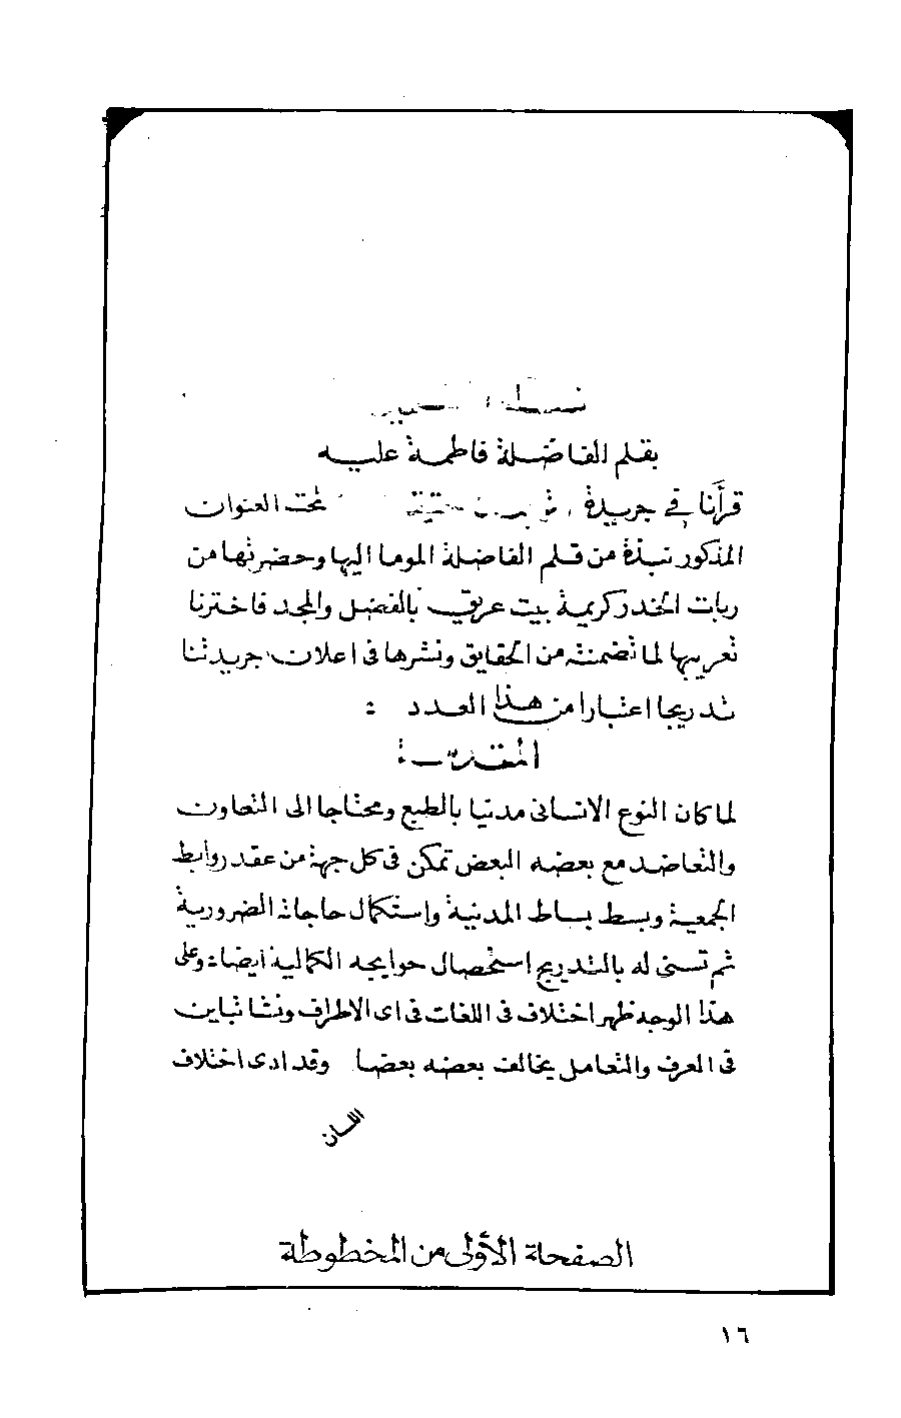 بقلم الفاضلة فاطمة عليه
قرأنا في جريدة تحت العنوان
المذكور نبذة من قلم الفاضلة الموما اليها وحضرتها من
ربات الخدر كريمة بيت عريق بالفضل والمجد فاخترنا
تعريبها لما تضمنته من الحقايق ونشرها فى اعلان جريدتنا
تدريجا اعتبارا من هذا العدد :
المقدمة
لما كان النوع الانسانى مدنيا بالطبع ومحتاجا الى التعاون
والتعاضد مع بعضه البعض تمكن فى كل جهة من عقد روابط
الجمعية وبسط بساط المدنية واستكمال حاجاته الضرورية
ثم تسنى له بالتدريج استحصال حوايجه الكمالية ايضا : وعلى
هذا الوجه ظهر اختلاف فى اللغات فى اى الاطراف ونشا تباين
فى العرف والتعامل يخالف بعضه بعضا وقد ادى اختلاف
اللسان
الصفحة الأولى من المخطوطة
١٦